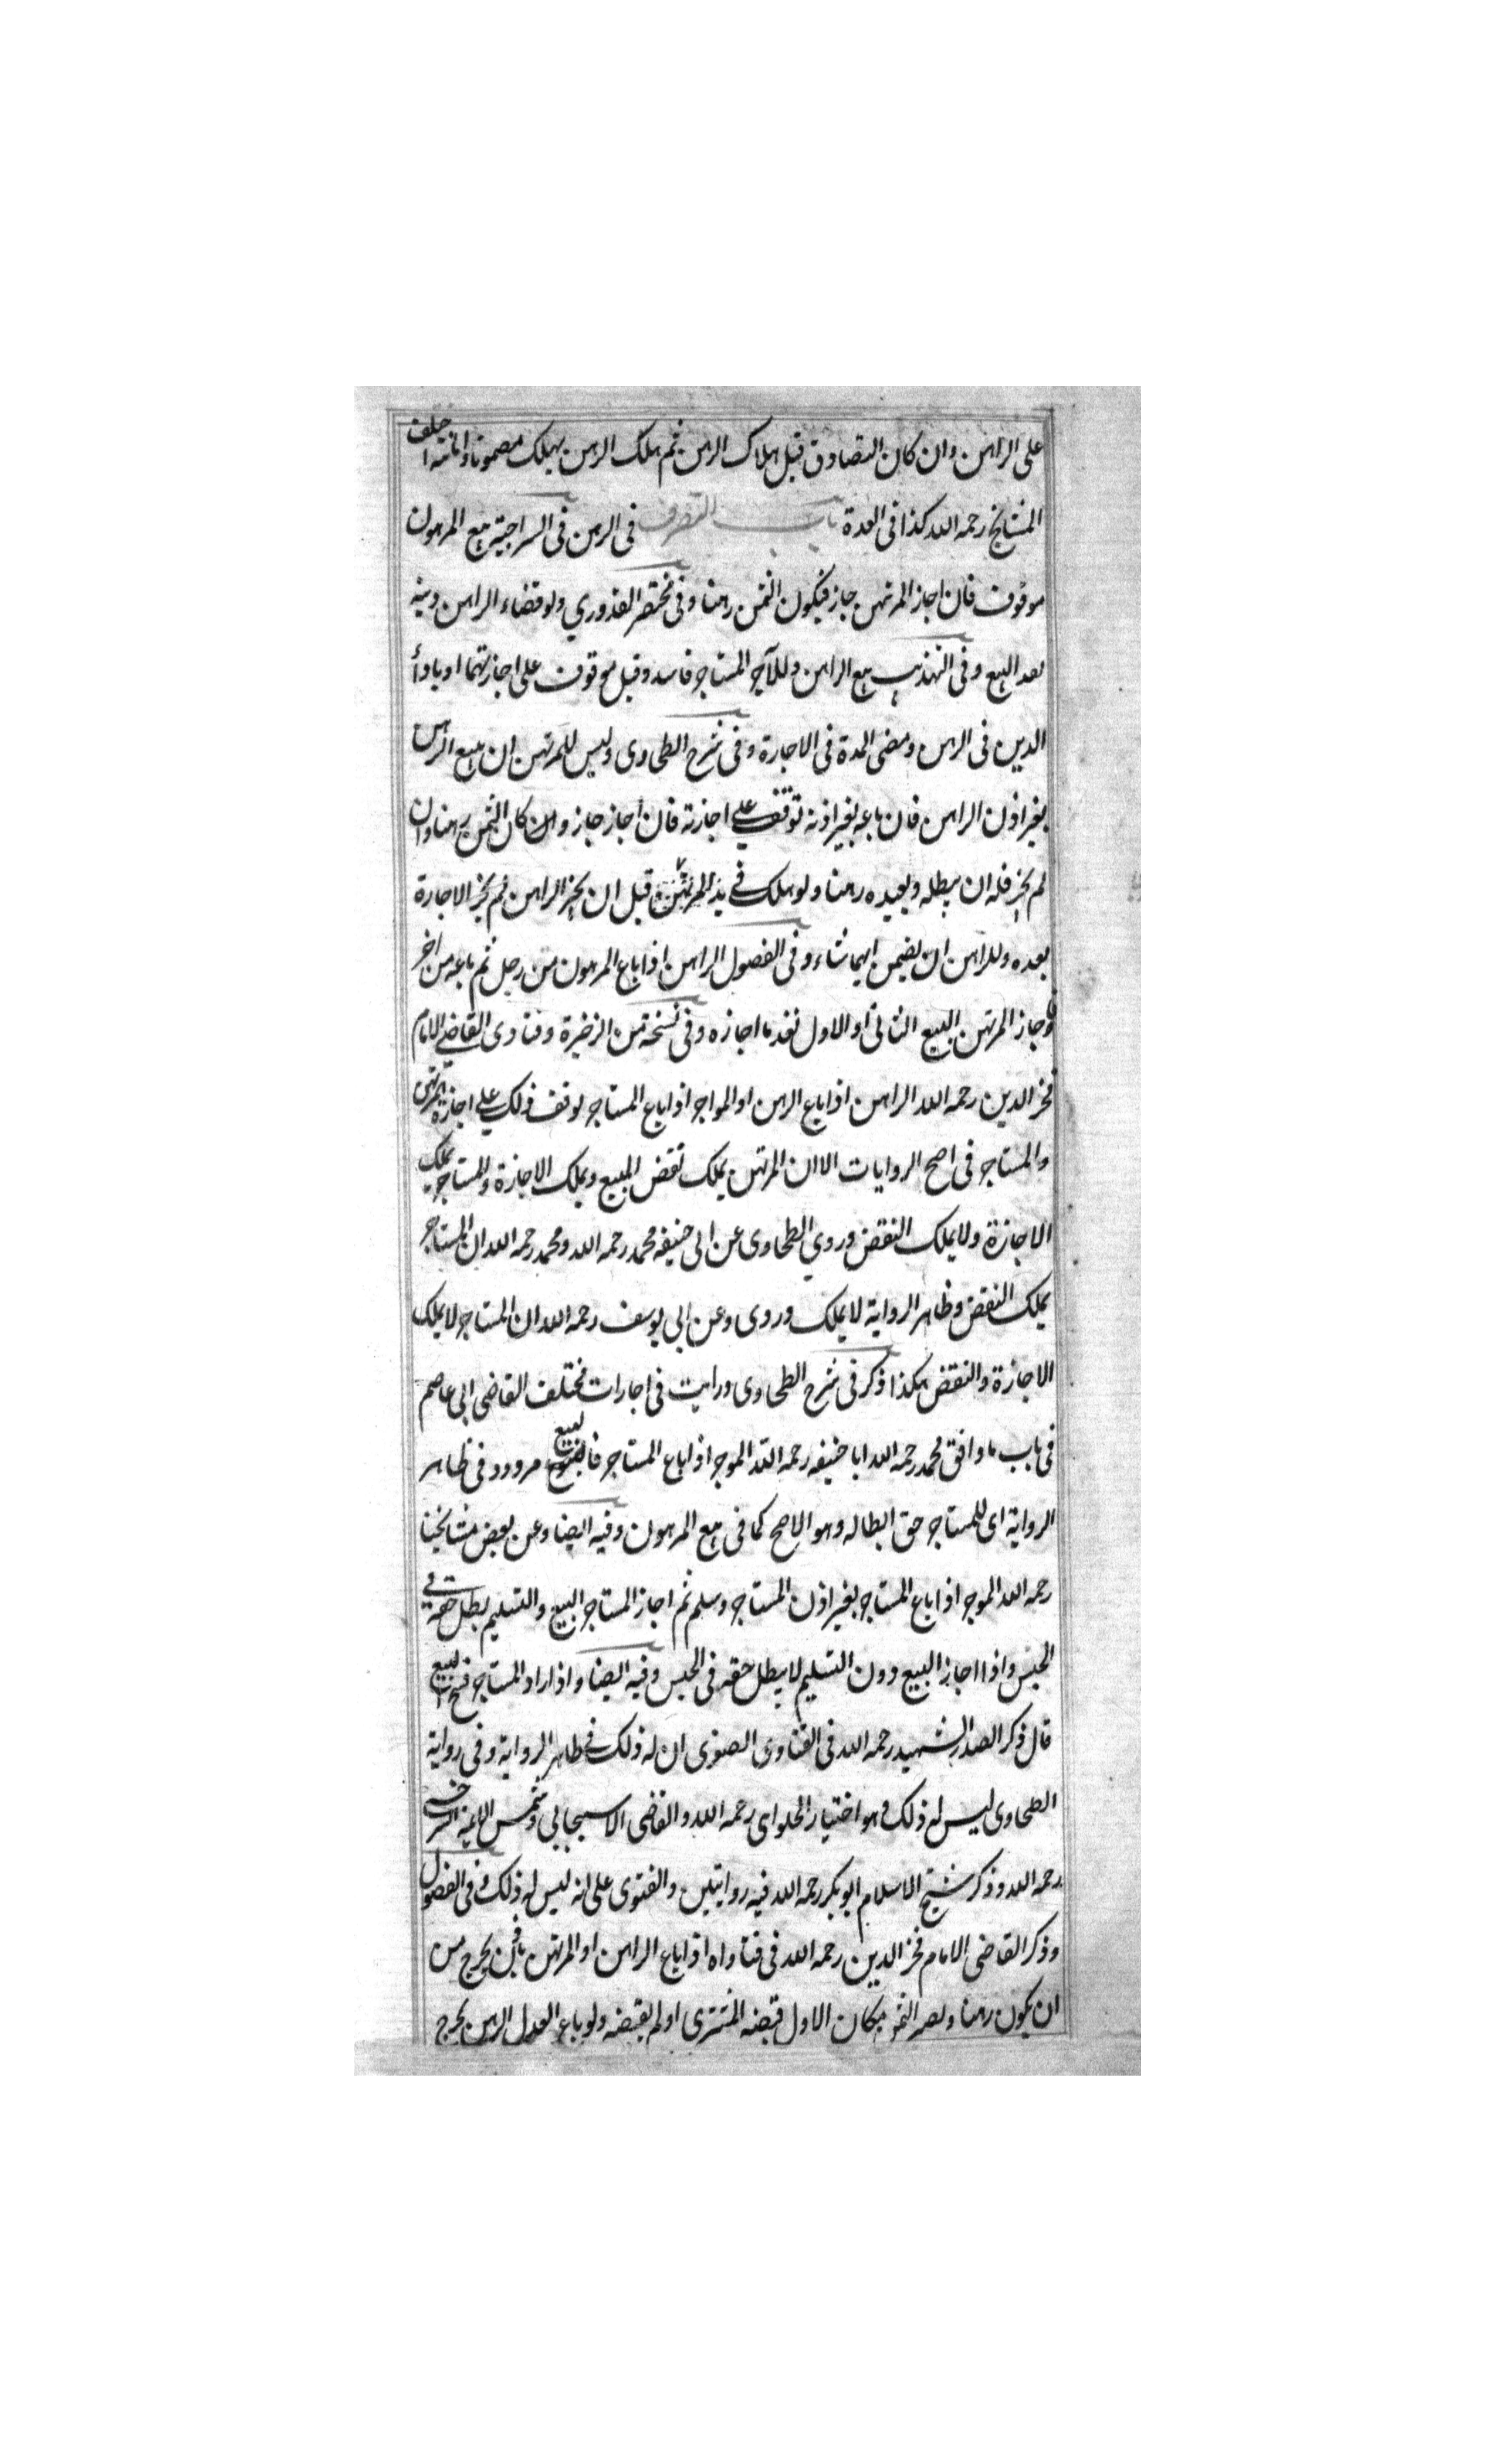 على الراهن وان كان التصادق قبل هلاك الرهن ثم هلك الرهن يهلك مضمونا واختلف
المشايخ رحمه الله كذا فى العدة باب التصرف فى الرهن فى السراجية بيع المرهون
موقوف فان اجاز المرتهن جاز فيكون الثمن رهنا وفى مختصر القدوري ولو قضاء الراهن دينه
بعد البيع وفى التهذيب بيع الراهن وللآجر المستاجر فاسد وقيل موقوف على اجازتهما او باداء
الدين فى الرهن ومضى المدة فى الاجارة وفى شرح الطحاوى وليس للمرتهن ان يبيع الرهن
بغير اذن الراهن فان باعه بغير اذنه توقف على اجازته فان اجاز جاز وان كان الثمن رهنا وان
لم يجز فله ان يبطله ويعيده رهنا ولو هلك فى يد المرتهن قبل ان يجيز الراهن لم يجز الاجازة
بعده وللراهن ان يضمن ايهما شاء وفى الفصول الراهن اذا باع المرهون من رجل ثم باعه من اخر
فاجاز المرتهن البيع الثانى او الاول نفد ما اجازه وفى نسخة من الزخيرة وفتاوى القاضى الامام
فخر الدين رحمه الله الراهن اذا باع الرهن او المواجر اذا باع المستاجر توقف ذلك على اجازة المرتهن
والمستاجر فى اصح الروايات الا ان المرتهن يملك نقض البيع ويملك الاجازة والمستاجر يملك
الاجازة ولا يملك النقض وروي الطحاوى عن ابى حنيفه محمد رحمه الله ومحمد رحمه الله ان المستاجر
يملك النقض وظاهر الرواية لا يملك وروى وعن ابى يوسف رحمه الله ان المستاجر لا يملك
الاجازة والنقض هكذا ذكر فى شرح الطحاوى ورايت فى اجارات مختلف القاضى ابى عاصم
فى باب ما وافق محمد رحمه الله ابا حنيفه رحمه الله الموجر اذا باع المستاجر فالبيع مردود فى ظاهر
الرواية اى للمستاجر حق ابطاله وهو الاصح كما فى بيع المرهون وفيه ايضا وعن بعض مشايخنا
رحمه الله الموجر اذا باع المستاجر بغير اذن المستاجر وسلم ثم اجاز المستاجر البيع والتسليم بطل حقه فى
الحبس واذا اجاز البيع دون التسليم لا يبطل حقه فى الحبس وفيه ايضا واذا اراد المستاجر فسخ البيع
قال ذكر الصدر الشهيد رحمه الله فى الفتاوى الصغرى ان له ذلك فى ظاهر الرواية وفى رواية
الطحاوى ليس له ذلك وهو اختيار الحلواى رحمه الله والقاضى الاسبيجابي وشمس الائمة السرخسى
رحمه الله وذكر شيخ الاسلام ابو بكر رحمه الله فيه روايتين والفتوى على انه ليس له ذلك وفى الفصول
وذكر القاضى الامام فخر الدين رحمه الله فى فتاواه اذا باع الراهن او المرتهن يخرج من
ان يكون رهنا الثمن مكان الاول قبضه المشترى او لم يقبضه ولو باع العدل الرهن يخرج